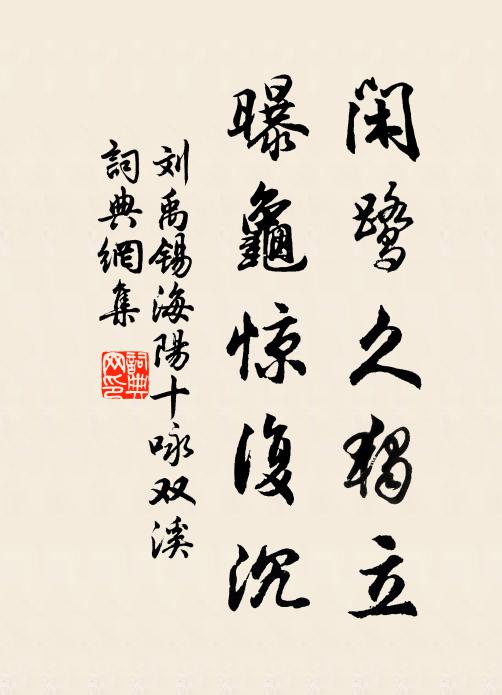 闲鹭久獨立
曝龜惊復沉
刘禹锡海陽十咏双溪
詞典網集
詞典
网印